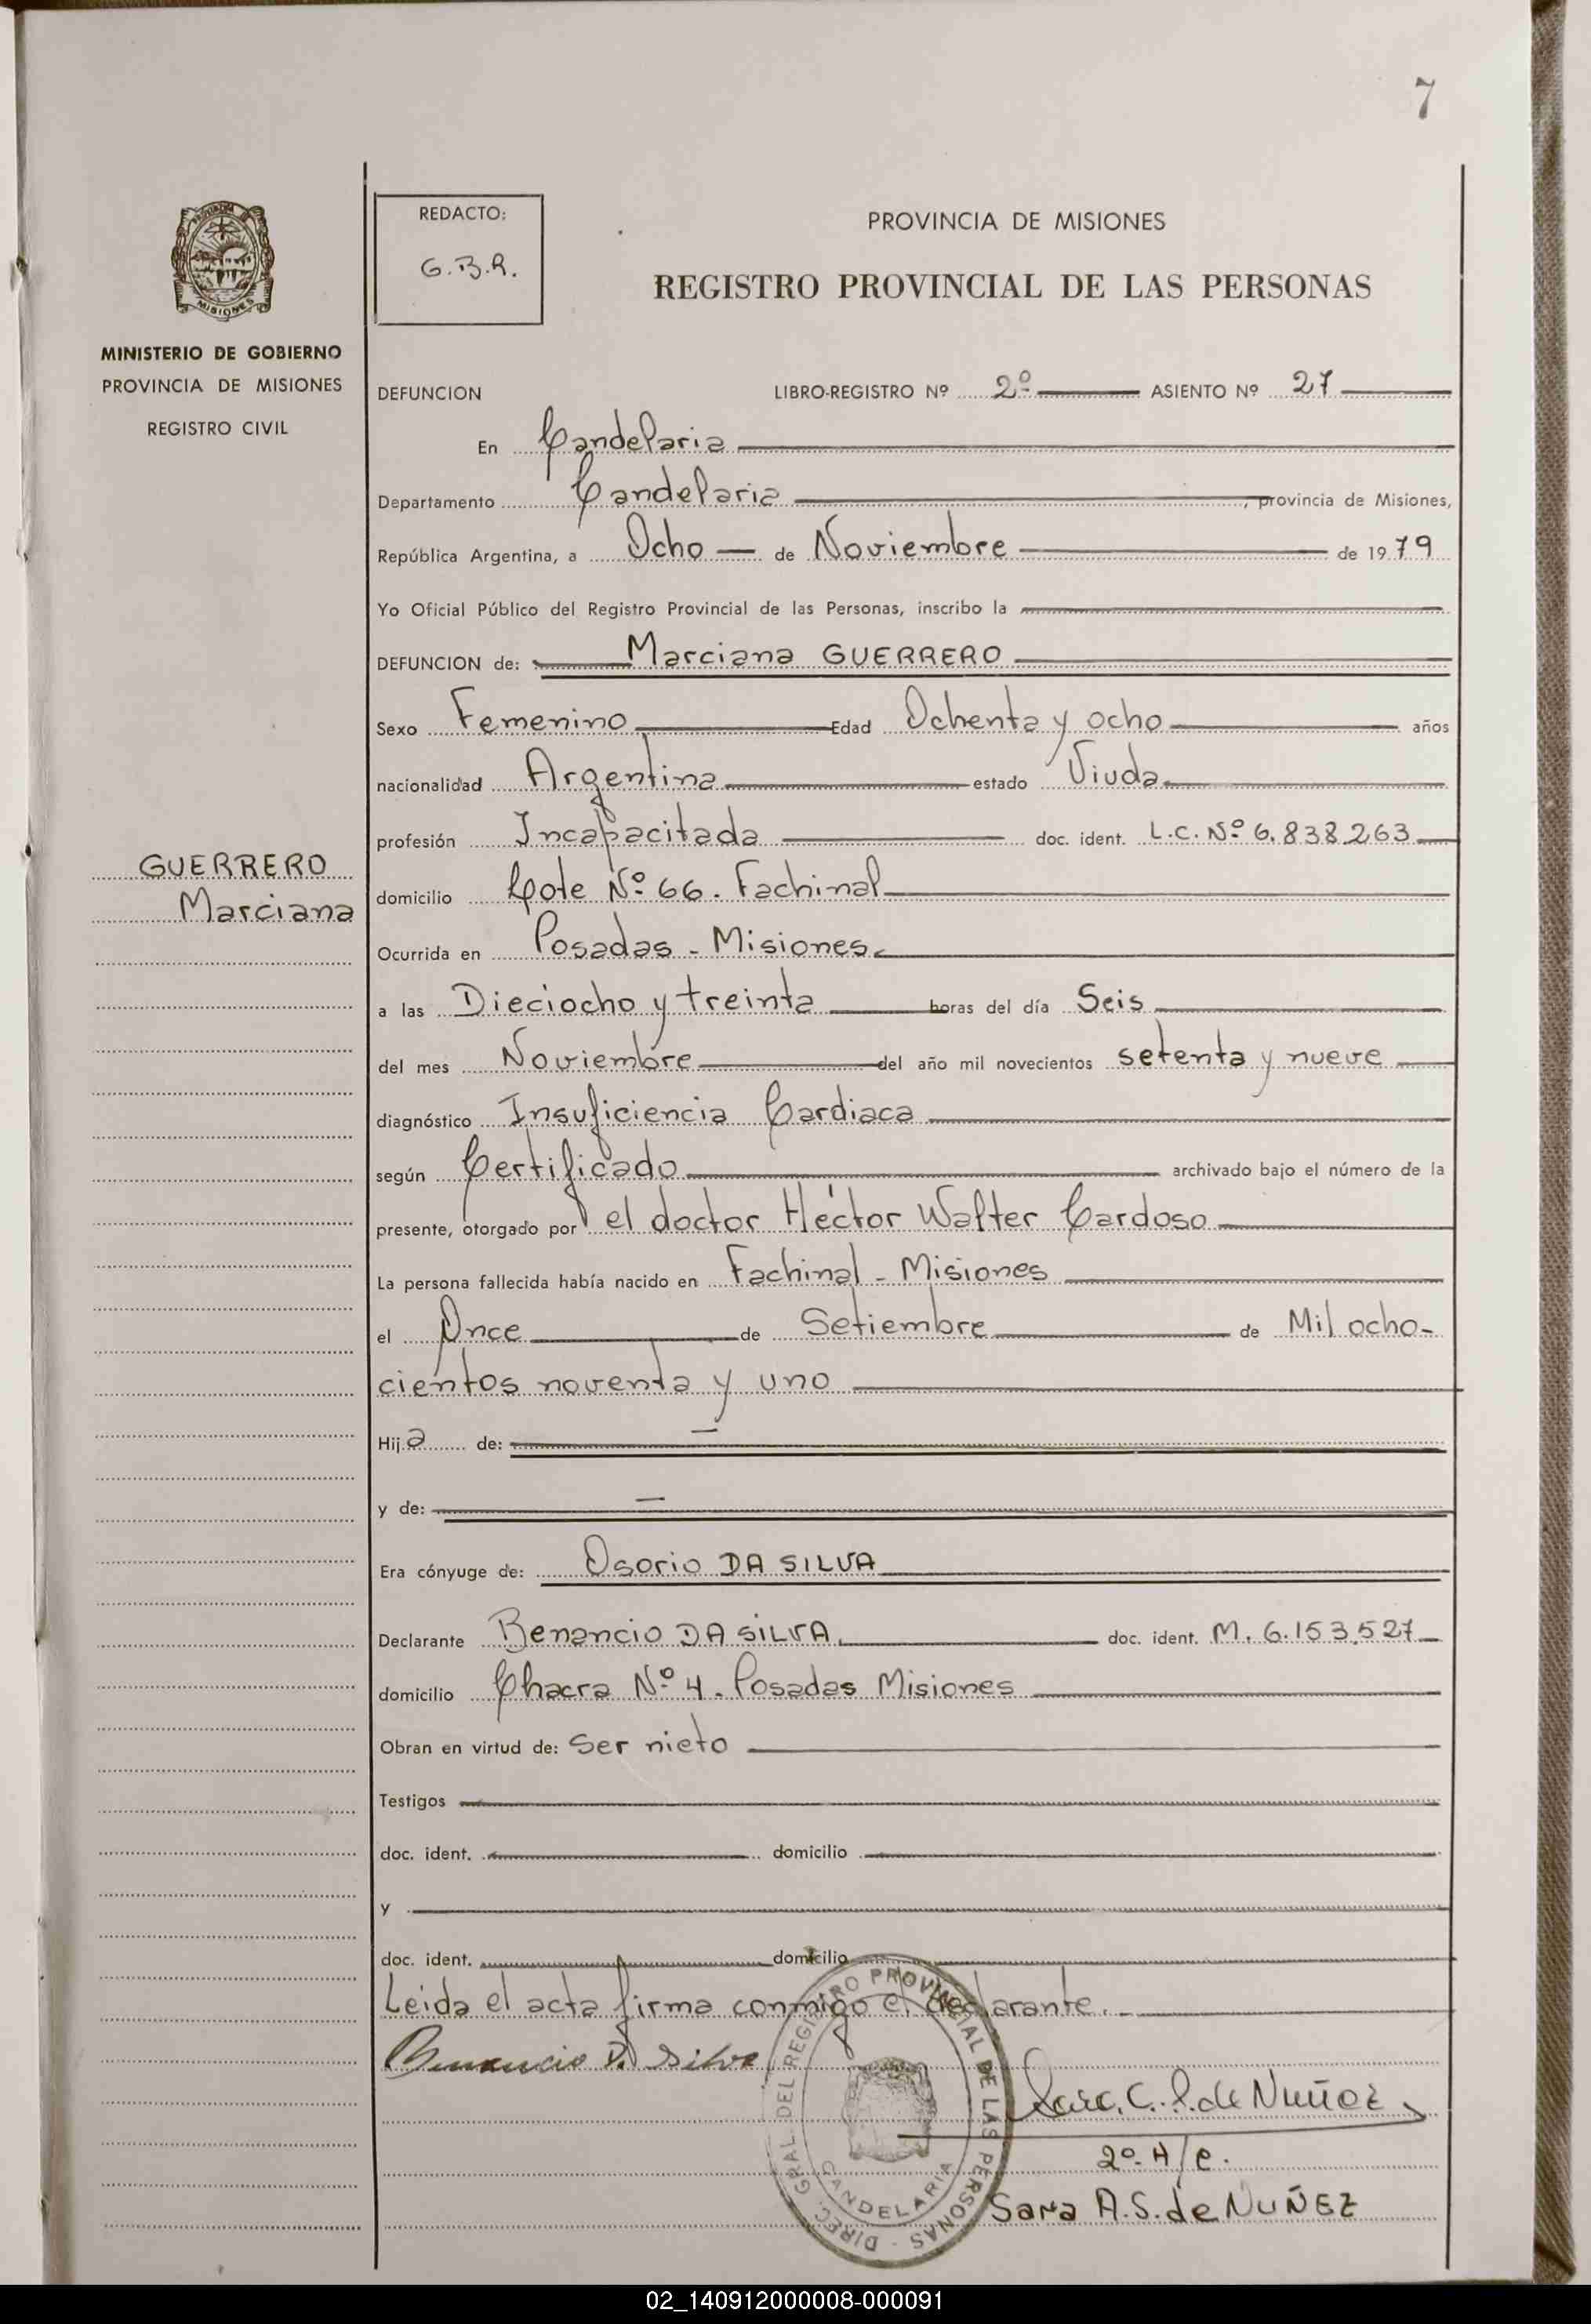 7
REDACTO:
G.B.R.
PROVINCIA DE MISIONES
REGISTRO PROVINCIAL DE LAS PERSONAS
MISIONES
MINISTERIO DE GOBIERNO
PROVINCIA DE MISIONES
REGISTRO CIVIL
DEFUNCION LIBRO-REGISTRO Nº 2º ASIENTO Nº 27
En Candelaria
Departamento Candelaria, provincia de Misiones,
República Argentina, a Ocho de Noviembre de 1979
Yo Oficial Público del Registro Provincial de las Personas, inscribo la
DEFUNCION de: Marciana GUERRERO
Sexo Femenino Edad Ochenta y ocho años
nacionalidad Argentina estado Viuda
profesión Incapacitada doc. ident. L.C. Nº 6.838.263
GUERRERO
Marciana
domicilio Lote Nº 66. Fachinal
Ocurrida en Posadas - Misiones
a las Dieciocho y treinta horas del día Seis
del mes Noviembre del año mil novecientos setenta y nueve
diagnóstico Insuficiencia Cardiaca
según Certificado archivado bajo el número de la
presente, otorgado por el doctor Héctor Walter Cardoso
La persona fallecida había nacido en Fachinal - Misiones
el Once de Setiembre de Mil ocho-
cientos noventa y uno
Hija de: —
y de: —
Era cónyuge de: Osorio DA SILVA
Declarante Benancio DA SILVA. doc. ident. M. 6.153.527
domicilio Chacra Nº 4. Posadas Misiones
Obran en virtud de: Ser nieto
Testigos
doc. ident. domicilio
y
doc. ident. domicilio
Leida el acta firma conmigo el declarante.
Benancio D. Silva
DIREC. GRAL. DEL REGISTRO PROVINCIAL DE LAS PERSONAS
CANDELARIA
de Nuñez
2º A/c.
Sara A.S. de NUÑEZ
02_140912000008-000091